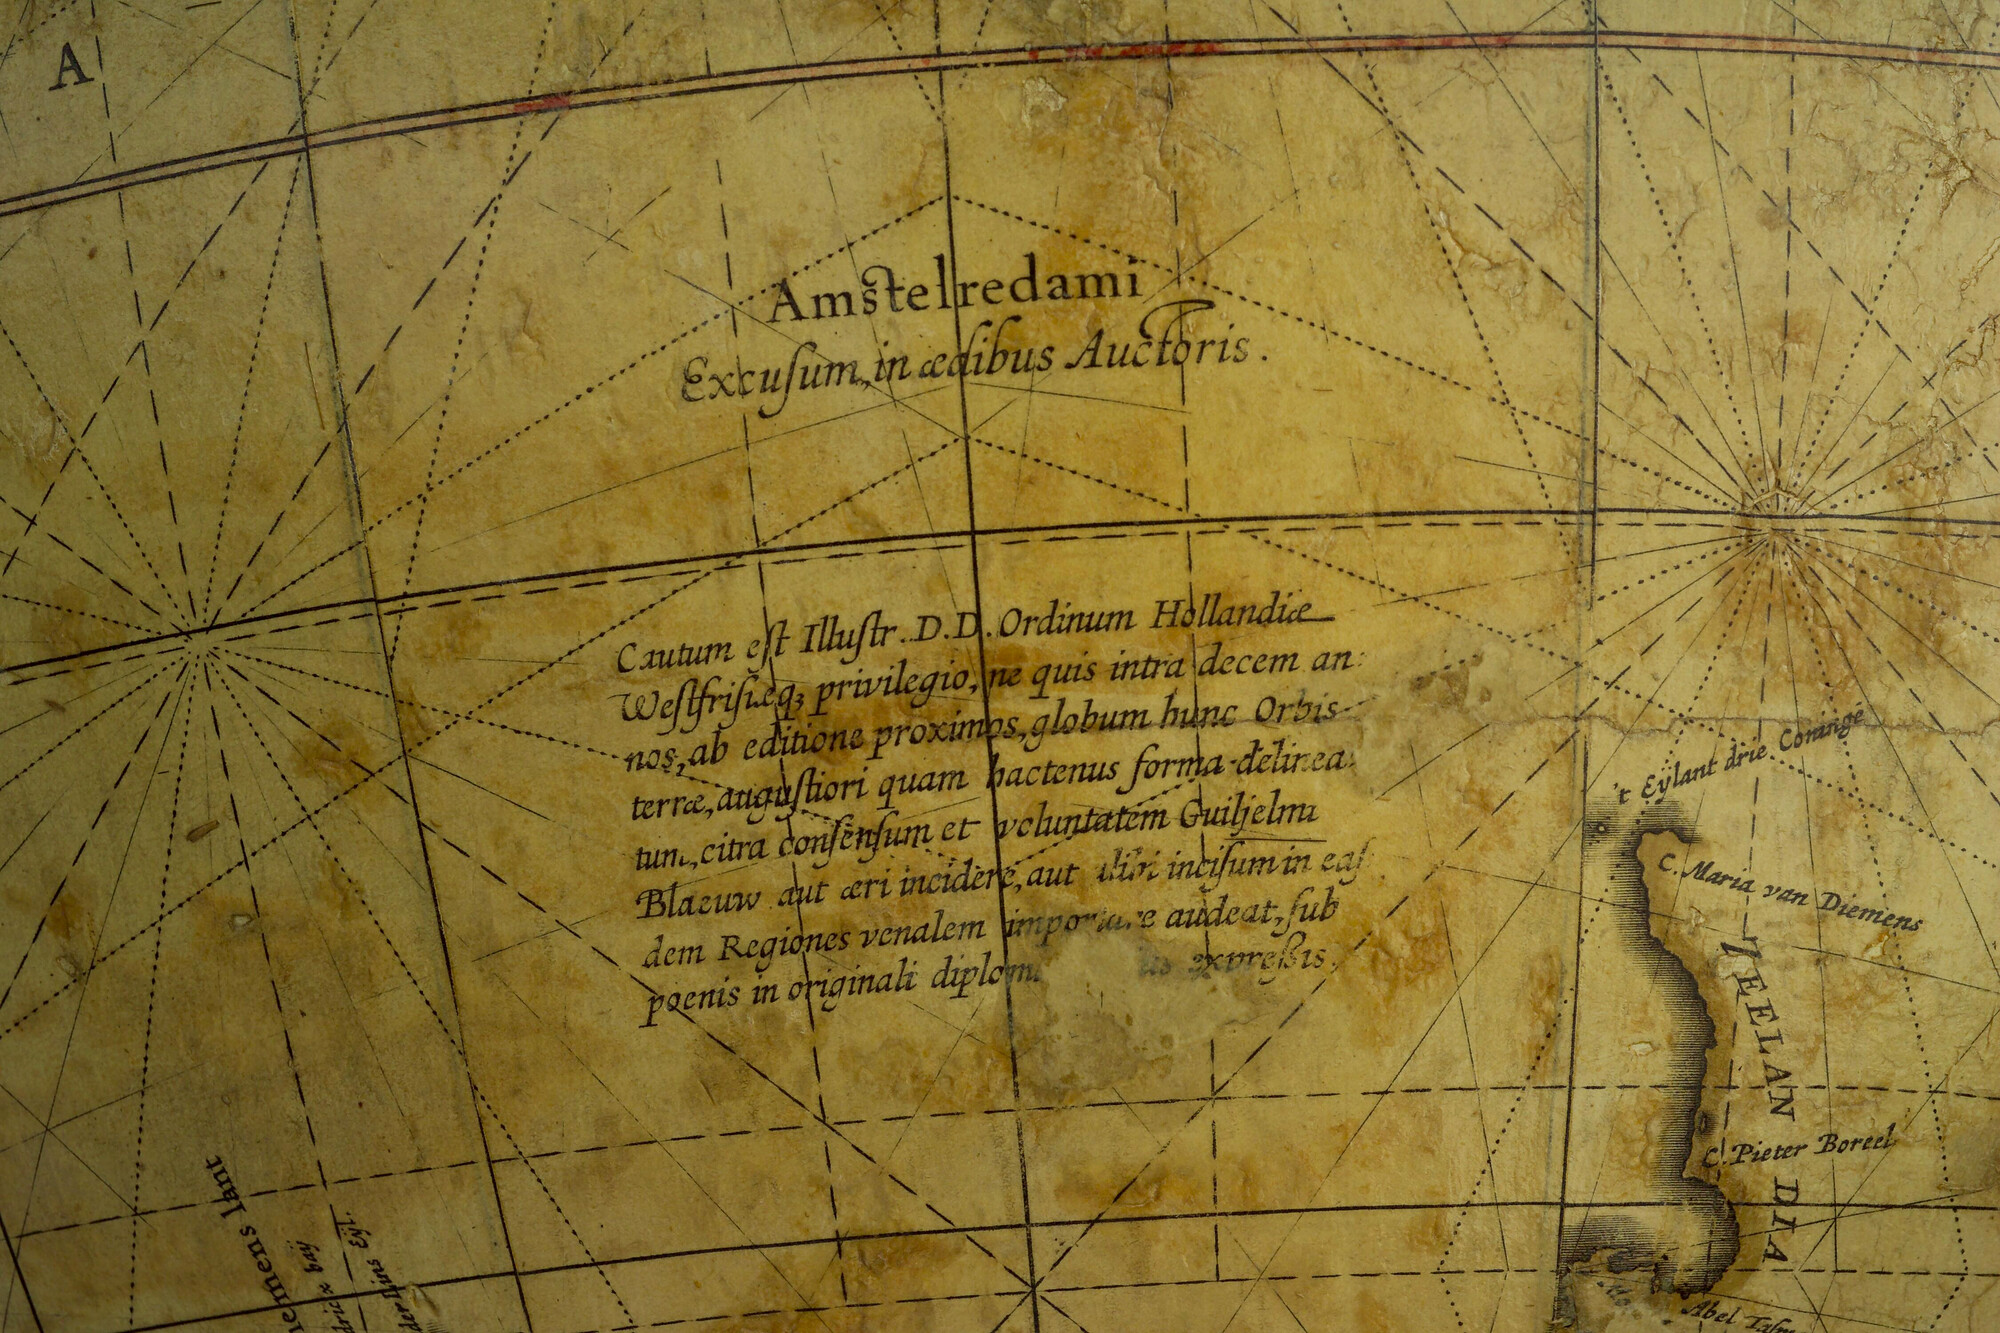 A
Amstelredami
Excuſum, in ædibus Auctoris.
Cautum eſt Illuſtr. D.D. Ordinum Hollandiæ
Weſtfriſiæq; privilegio, ne quis intra decem an:
nos, ab editione proximos, globum hunc Orbis
terræ, auguſtiori quam hactenus forma delinea
tum, citra conſenſum et voluntatem Guiljelmi
Blaeuw aut æri incidere, aut alibi inciſum in eaſ
dem Regiones venalem importare audeat, ſub
poenis in originali expreßis.
't Eylant drie Coninge
C. Maria van Diemens
ZEELANDIA
C. Pieter Boreel
Abel
lant
baij
Eyl.